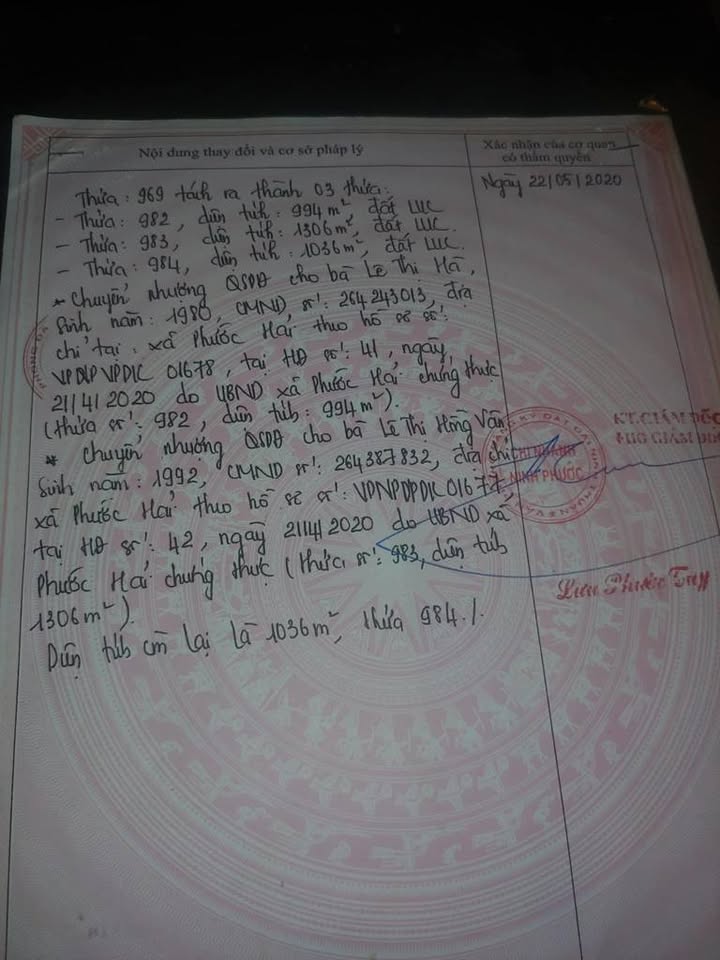 Nội dung thay đổi và cơ sở pháp lý
Xác nhận của cơ quan
có thẩm quyền
Ngày 22/05/2020
Thửa: 969 tách ra thành 03 thửa:
- Thửa: 982, diện tích: 994m², đất LUC
- Thửa: 983, diện tích: 1306m², đất LUC.
- Thửa: 984, diện tích: 1036m², đất LUC.
* Chuyển nhượng QSDĐ cho bà Lê Thị Hà,
Sinh năm: 1980, CMND số: 264243013, địa
chỉ tại: xã Phước Hải theo hồ sơ số:
01678, tại HĐ số: 41, ngày,
21/4/2020 do UBND xã Phước Hải chứng thực
(thửa số: 982, diện tích: 994m²).
* Chuyển nhượng QSDĐ cho bà Lê Thị Hồng Vân
Sinh năm: 1992, CMND số: 264387832, địa chỉ
xã Phước Hải theo hồ sơ số: 01677,
tại HĐ số: 42, ngày 21/4/2020 do UBND xã
Phước Hải chứng thực (thửa số: 983, diện tích
1306m²).
Diện tích còn lại là 1036m², thửa 984./.
KT.GIÁM ĐỐC
PHÓ GIÁM ĐỐC
CHI NHÁNH
NINH PHƯỚC
Lưu Phước